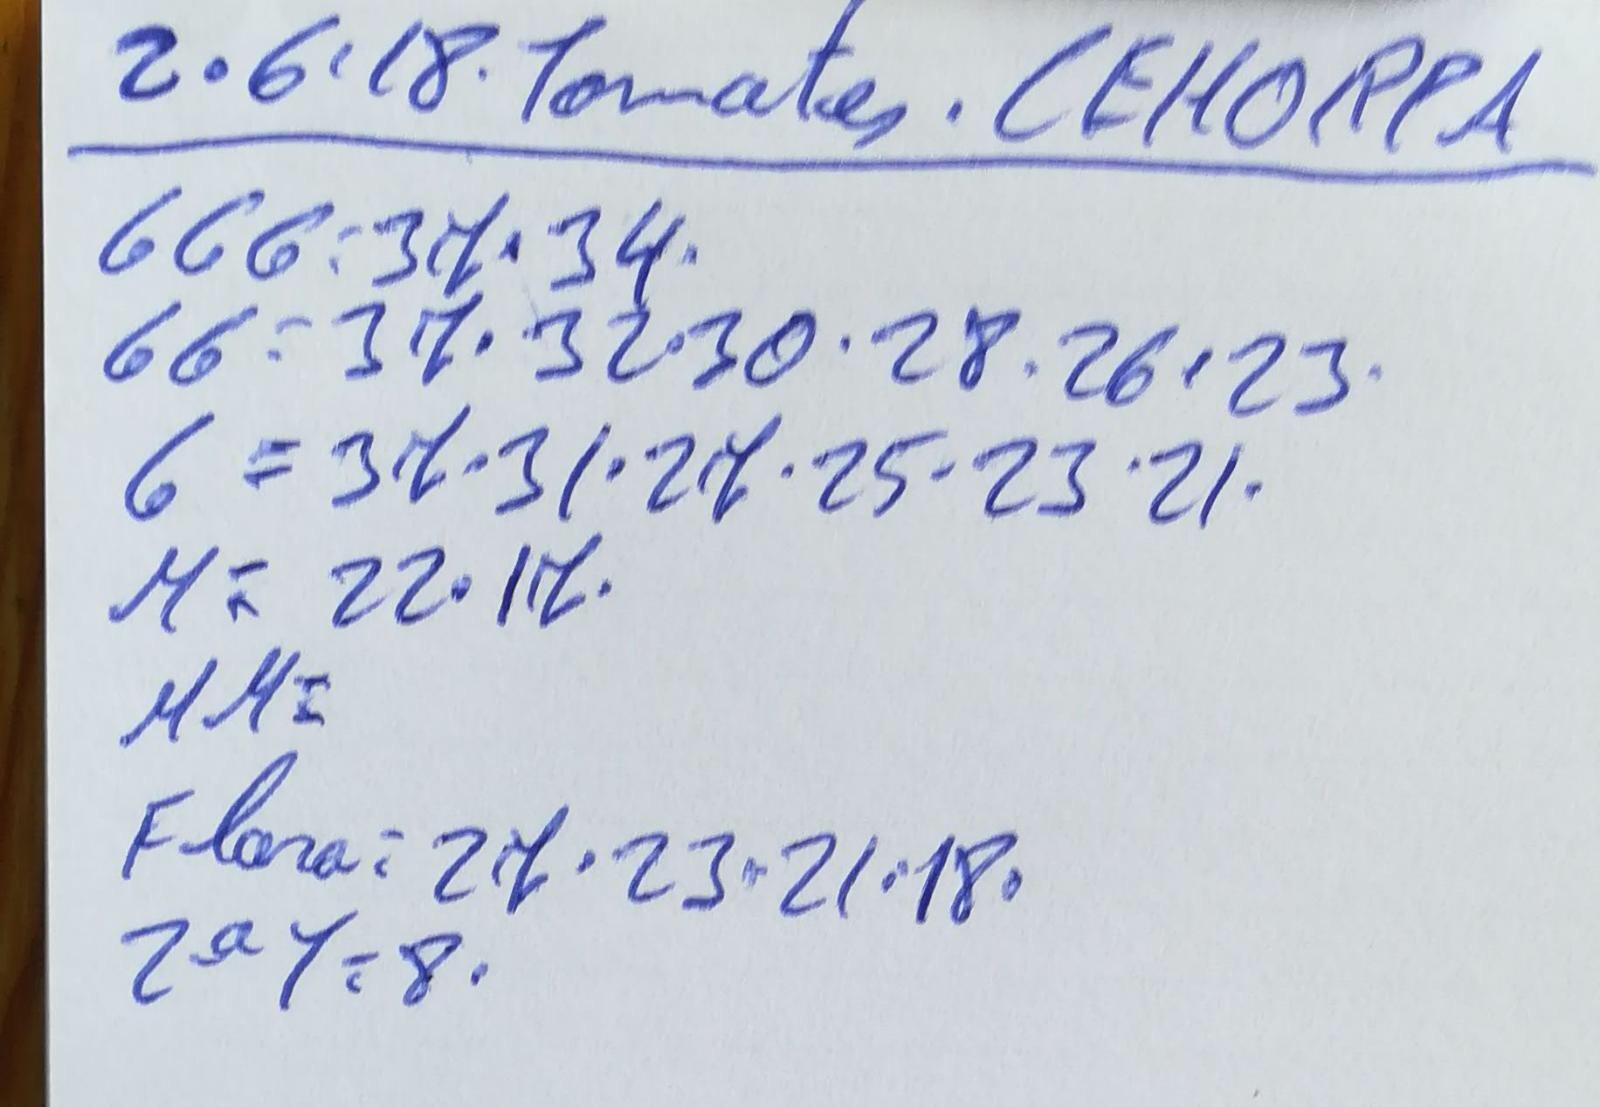 2.6.18. Tomates. CEHORPA
GGG=37.34.
GG=37.32.30.28.26.23.
G=37.31.27.25.23.21.
M=22.17.
MM=
Flora=27.23.21.18.
2ª Y=8.